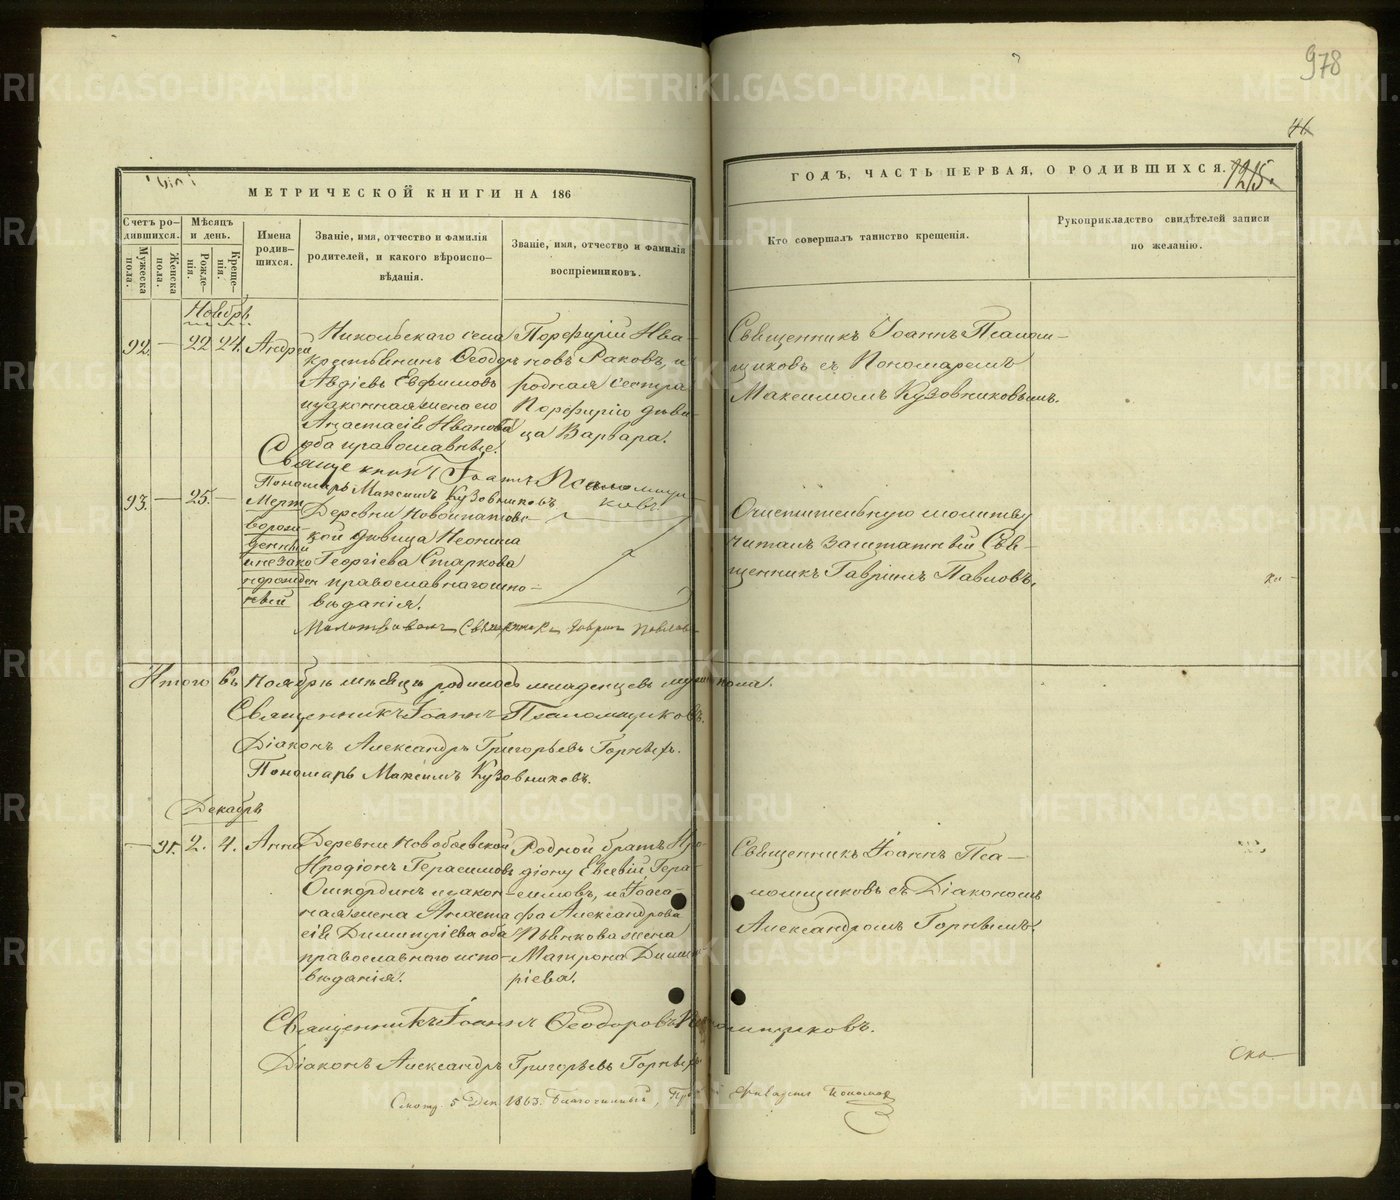 978
46
1215.
МЕТРИЧЕСКОЙ КНИГИ НА 186
ГОДЪ, ЧАСТЬ ПЕРВАЯ, О РОДИВШИХСЯ.
Счетъ родившихся.
Мужеска пола.
Женска пола.
Мѣсяцъ и день.
Рожденія.
Крещенія.
Имена родившихся.
Званіе, имя, отчество и фамилія
родителей, и какого вѣроиспо-
вѣданія.
Званіе, имя, отчество и фамилія
воспріемниковъ.
Кто совершалъ таинство крещенія.
Рукоприкладство свидѣтелей записи
по желанію.
Ноябрь
92. — 22 24. Андрей
Никольскаго села
крестьянинъ Ѳеодоръ
Авдіевъ Евфимовъ
и законная жена его
Анастасія Иванова
оба православные.
Порфирій Ива-
новъ Раковъ, и
родная сестра
Порфирію дѣви-
ца Варвара.
Священникъ Іоаннъ Псалом-
щиковъ съ Пономаремъ
Максимомъ Кузовниковымъ.
Священникъ Іоаннъ Псаломщи-
ковъ
Пономарь Максимъ Кузовниковъ
93. — 25. —
Мерт
ворож
денный
и незако
норожден
ный
Деревни Новоипатовс-
кой дѣвица Неонила
Георгіева Старкова
православнаго испо-
вѣданія.
Очистительную молитву
читалъ заштатный Свя-
щенникъ Гавріилъ Павловъ.
Молитвовалъ Священникъ Гавріилъ Павловъ
Итого въ Ноябрѣ мѣсяцѣ родилось младенцевъ мужеска пола.
Священникъ Іоаннъ Псаломщиковъ.
Діаконъ Александръ Григорьевъ Горныхъ.
Пономарь Максимъ Кузовниковъ.
Декабрь
— 91. 2. 4. Анна
Деревни Новобоевской
Иродіонъ Герасимовъ
Ошкордин и закон-
ная жена Анаста
сія Димитріева оба
православнаго испо-
вѣданія.
Родной братъ Иро
діону Евсевій Гера
симовъ, и Іоаса-
фа Александрова
Пьянкова жена
Матрона Димит
ріева.
Священникъ Іоаннъ Пса-
ломщиковъ съ Діакономъ
Александромъ Горнымъ.
Священникъ Іоаннъ Ѳеодоровъ Псаломщиковъ.
Діаконъ Александръ Григорьевъ Горныхъ
5 Дек 1863. Благочинный,